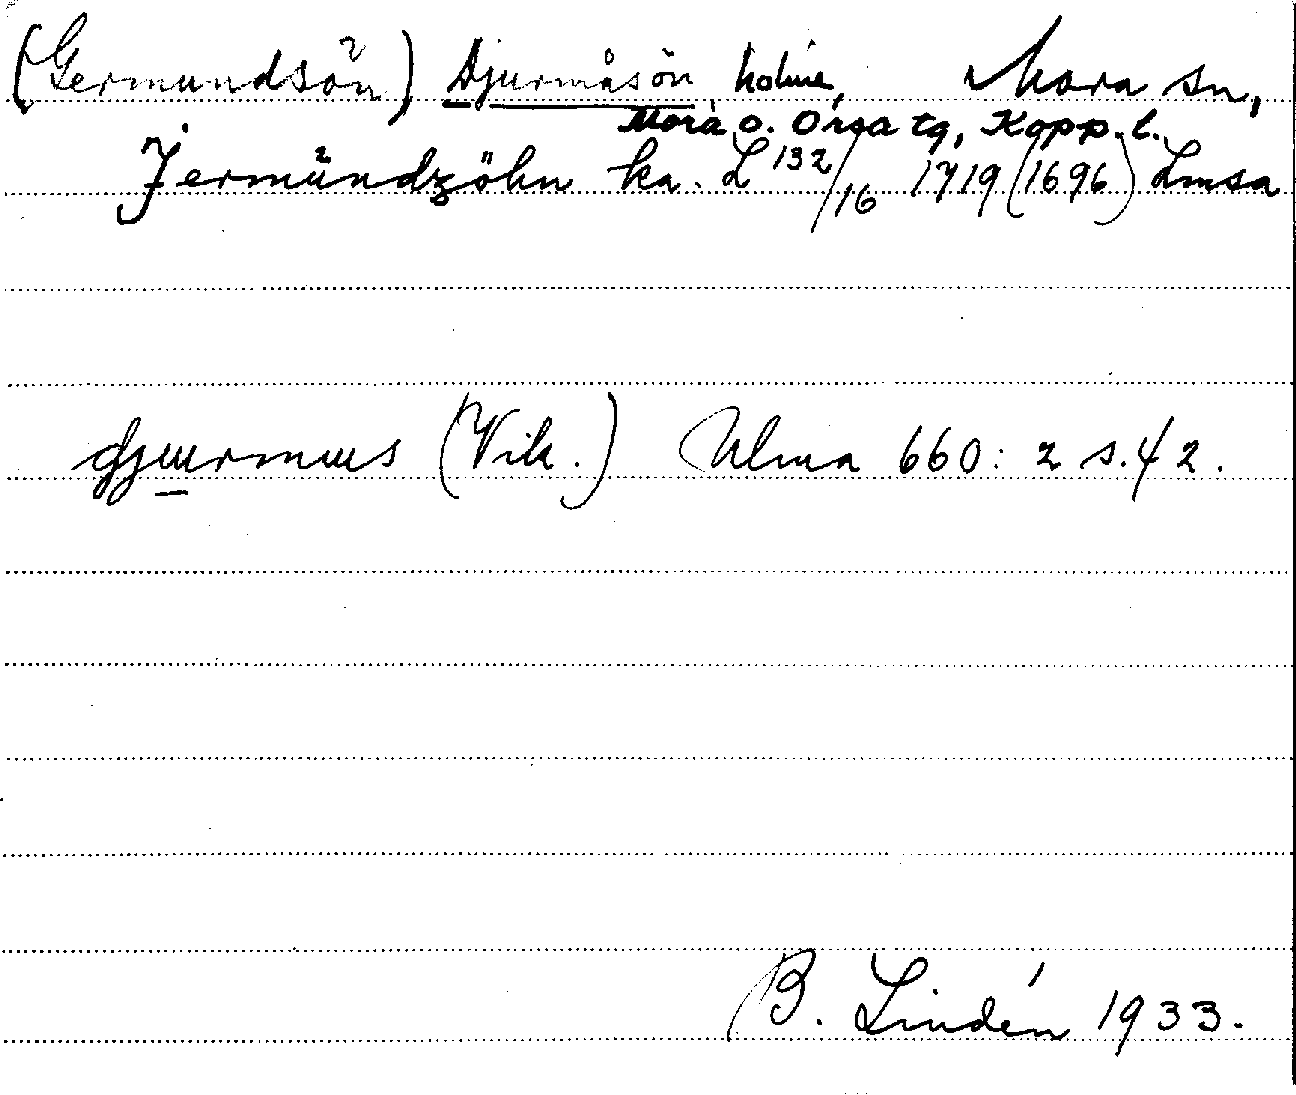 (Germundsön) Djurmåsön holme, Mora sn,
Mora o. Orsa tg, Kopp. l.
Jermündzöhn ka. L 132/16 1719 (1696) Lmsa
(Vik.) Ulma 660: 2 s. 42.
B. Lindén 1933.